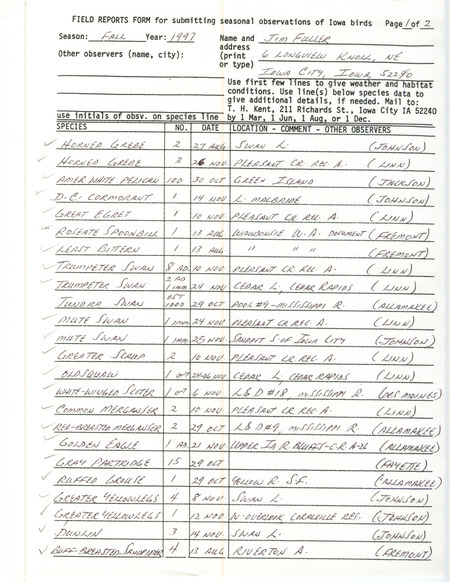 FIELD REPORTS FORM for submitting seasonal observations of Iowa birds Page 1 of 2
Season: FALL Year: 1997 Name and JIM FULLER
address 6 LONGVIEW KNOLL, NE
Other observers (name, city): (print
or type) IOWA CITY, IOWA, 52240
Use first few lines to give weather and habitat
conditions. Use line(s) below species data to
give additional details, if needed. Mail to:
T. H. Kent, 211 Richards St., Iowa City IA 52240
use initials of obsv. on species line by 1 Mar, 1 Jun, 1 Aug, or 1 Dec.
SPECIES NO. DATE LOCATION - COMMENT - OTHER OBSERVERS
HORNED GREBE 2 27 AUG SWAN L. (JOHNSON)
HORNED GREBE 3 26 NOV PLEASANT CR REC A. (LINN)
AMER WHITE PELICAN 100 30 OCT GREEN ISLAND (JACKSON)
D.C. CORMORANT 1 14 NOV L. MACBRIDE (JOHNSON)
GREAT EGRET 1 10 NOV PLEASANT CR. REC. A. (LINN)
ROSEATE SPOONBILL 1 13 AUG WAUBONSIE W.A. DOCUMENT (FREMONT)
LEAST BITTERN 1 13 AUG " " " (FREMONT)
TRUMPETER SWAN 8 AD. 10 NOV PLEASANT CR REC A. (LINN)
TRUMPETER SWAN 2 AD 1 imm 24 NOV CEDAR L, CEDAR RAPIDS (LINN)
TUNDRA SWAN EST 1000 29 OCT POOL #9 - MISSISSIPPI R. (ALLAMAKEE)
MUTE SWAN 1 imm 24 NOV PLEASANT CR. REC. A. (LINN)
MUTE SWAN 1 imm 25 NOV SANDPIT S. OF IOWA CITY (JOHNSON)
GREATER SCAUP 2 10 NOV PLEASANT CR. REC A. (LINN)
OLDSQUAW 1 ♂ 24-26 NOV CEDAR L, CEDAR RAPIDS (LINN)
WHITE-WINGED SCOTER 1 ♂ 6 NOV L & D #18 MISSISSIPPI R. (DES MOINES)
COMMON MERGANSER 2 10 NOV. PLEASANT CR REC A. (LINN)
RED-BREASTED MERGANSER 2 29 OCT L & D #9, MISSISSIPPI R. (ALLAMAKEE)
GOLDEN EAGLE 1 AD 21 NOV UPPER IA R. BLUFFS-C.R A-26 (ALLAMAKEE)
GRAY PARTRIDGE 15 29 OCT (FAYETTE)
RUFFED GROUSE 1 29 OCT YELLOW R. S.F. (ALLAMAKEE)
GREATER YELLOWLEGS 4 8 NOV. SWAN L. (JOHNSON)
GREATER YELLOWLEGS 1 12 NOV W. OVERLOOK CORALVILLE RES. (JOHNSON)
DUNLIN 3 14 NOV SWAN L. (JOHNSON)
BUFF-BREASTED SANDPIPER 4 13 AUG RIVERTON A. (FREMONT)